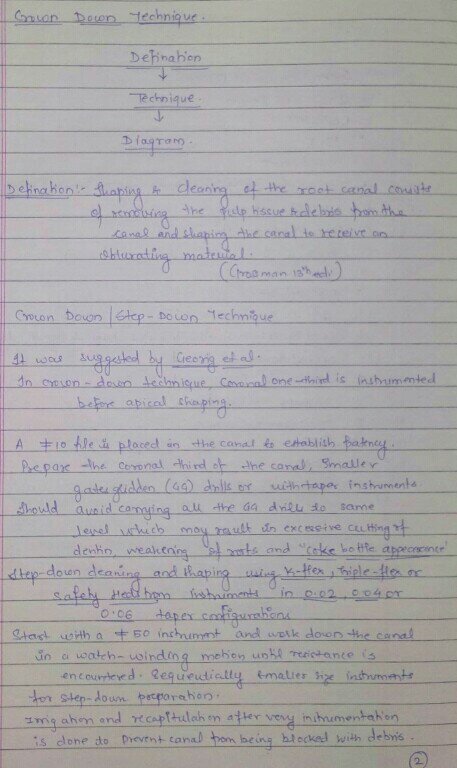 Crown Down Technique.
Defination
↓
Technique.
↓
Diagram.
Defination:- Shaping & cleaning of the root canal consists
of removing the pulp tissue & debris from the
canal and shaping the canal to receive an
obturating material.
(Grossman 13th edi.)
Crown Down | Step-Down Technique
It was suggested by Georig et al.
In crown-down technique, Coronal one-third is instrumented
before apical shaping.
A #10 file is placed in the canal to establish patency.
Prepare the coronal third of the canal, smaller
gates glidden (GG) drills or with taper instruments
Should avoid carrying all the GG drills to same
level which may result in excessive cutting of
dentin, weakening of roots and "coke bottle appearance"
Step-down cleaning and shaping using K-flex, Triple-flex or
safety Hedstrom instruments in 0.02, 0.04 or
0.06 taper configurations
Start with a #50 instrument and work down the canal
in a watch-winding motion until resistance is
encountered. Sequentially smaller size instruments
for step-down preparation.
Irrigation and recapitulation after very instrumentation
is done to prevent canal from being blocked with debris.
2